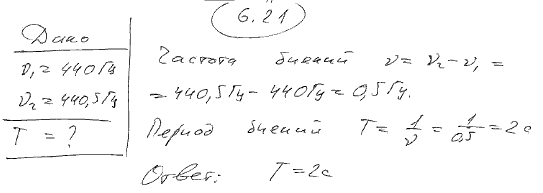 6.21
Дано
ν₁ = 440 Гц
ν₂ = 440,5 Гц
T = ?
Частота биений ν = ν₂ - ν₁ =
= 440,5 Гц - 440 Гц = 0,5 Гц.
Период биений T = 1/ν = 1/0,5 = 2 с
Ответ: T = 2 с